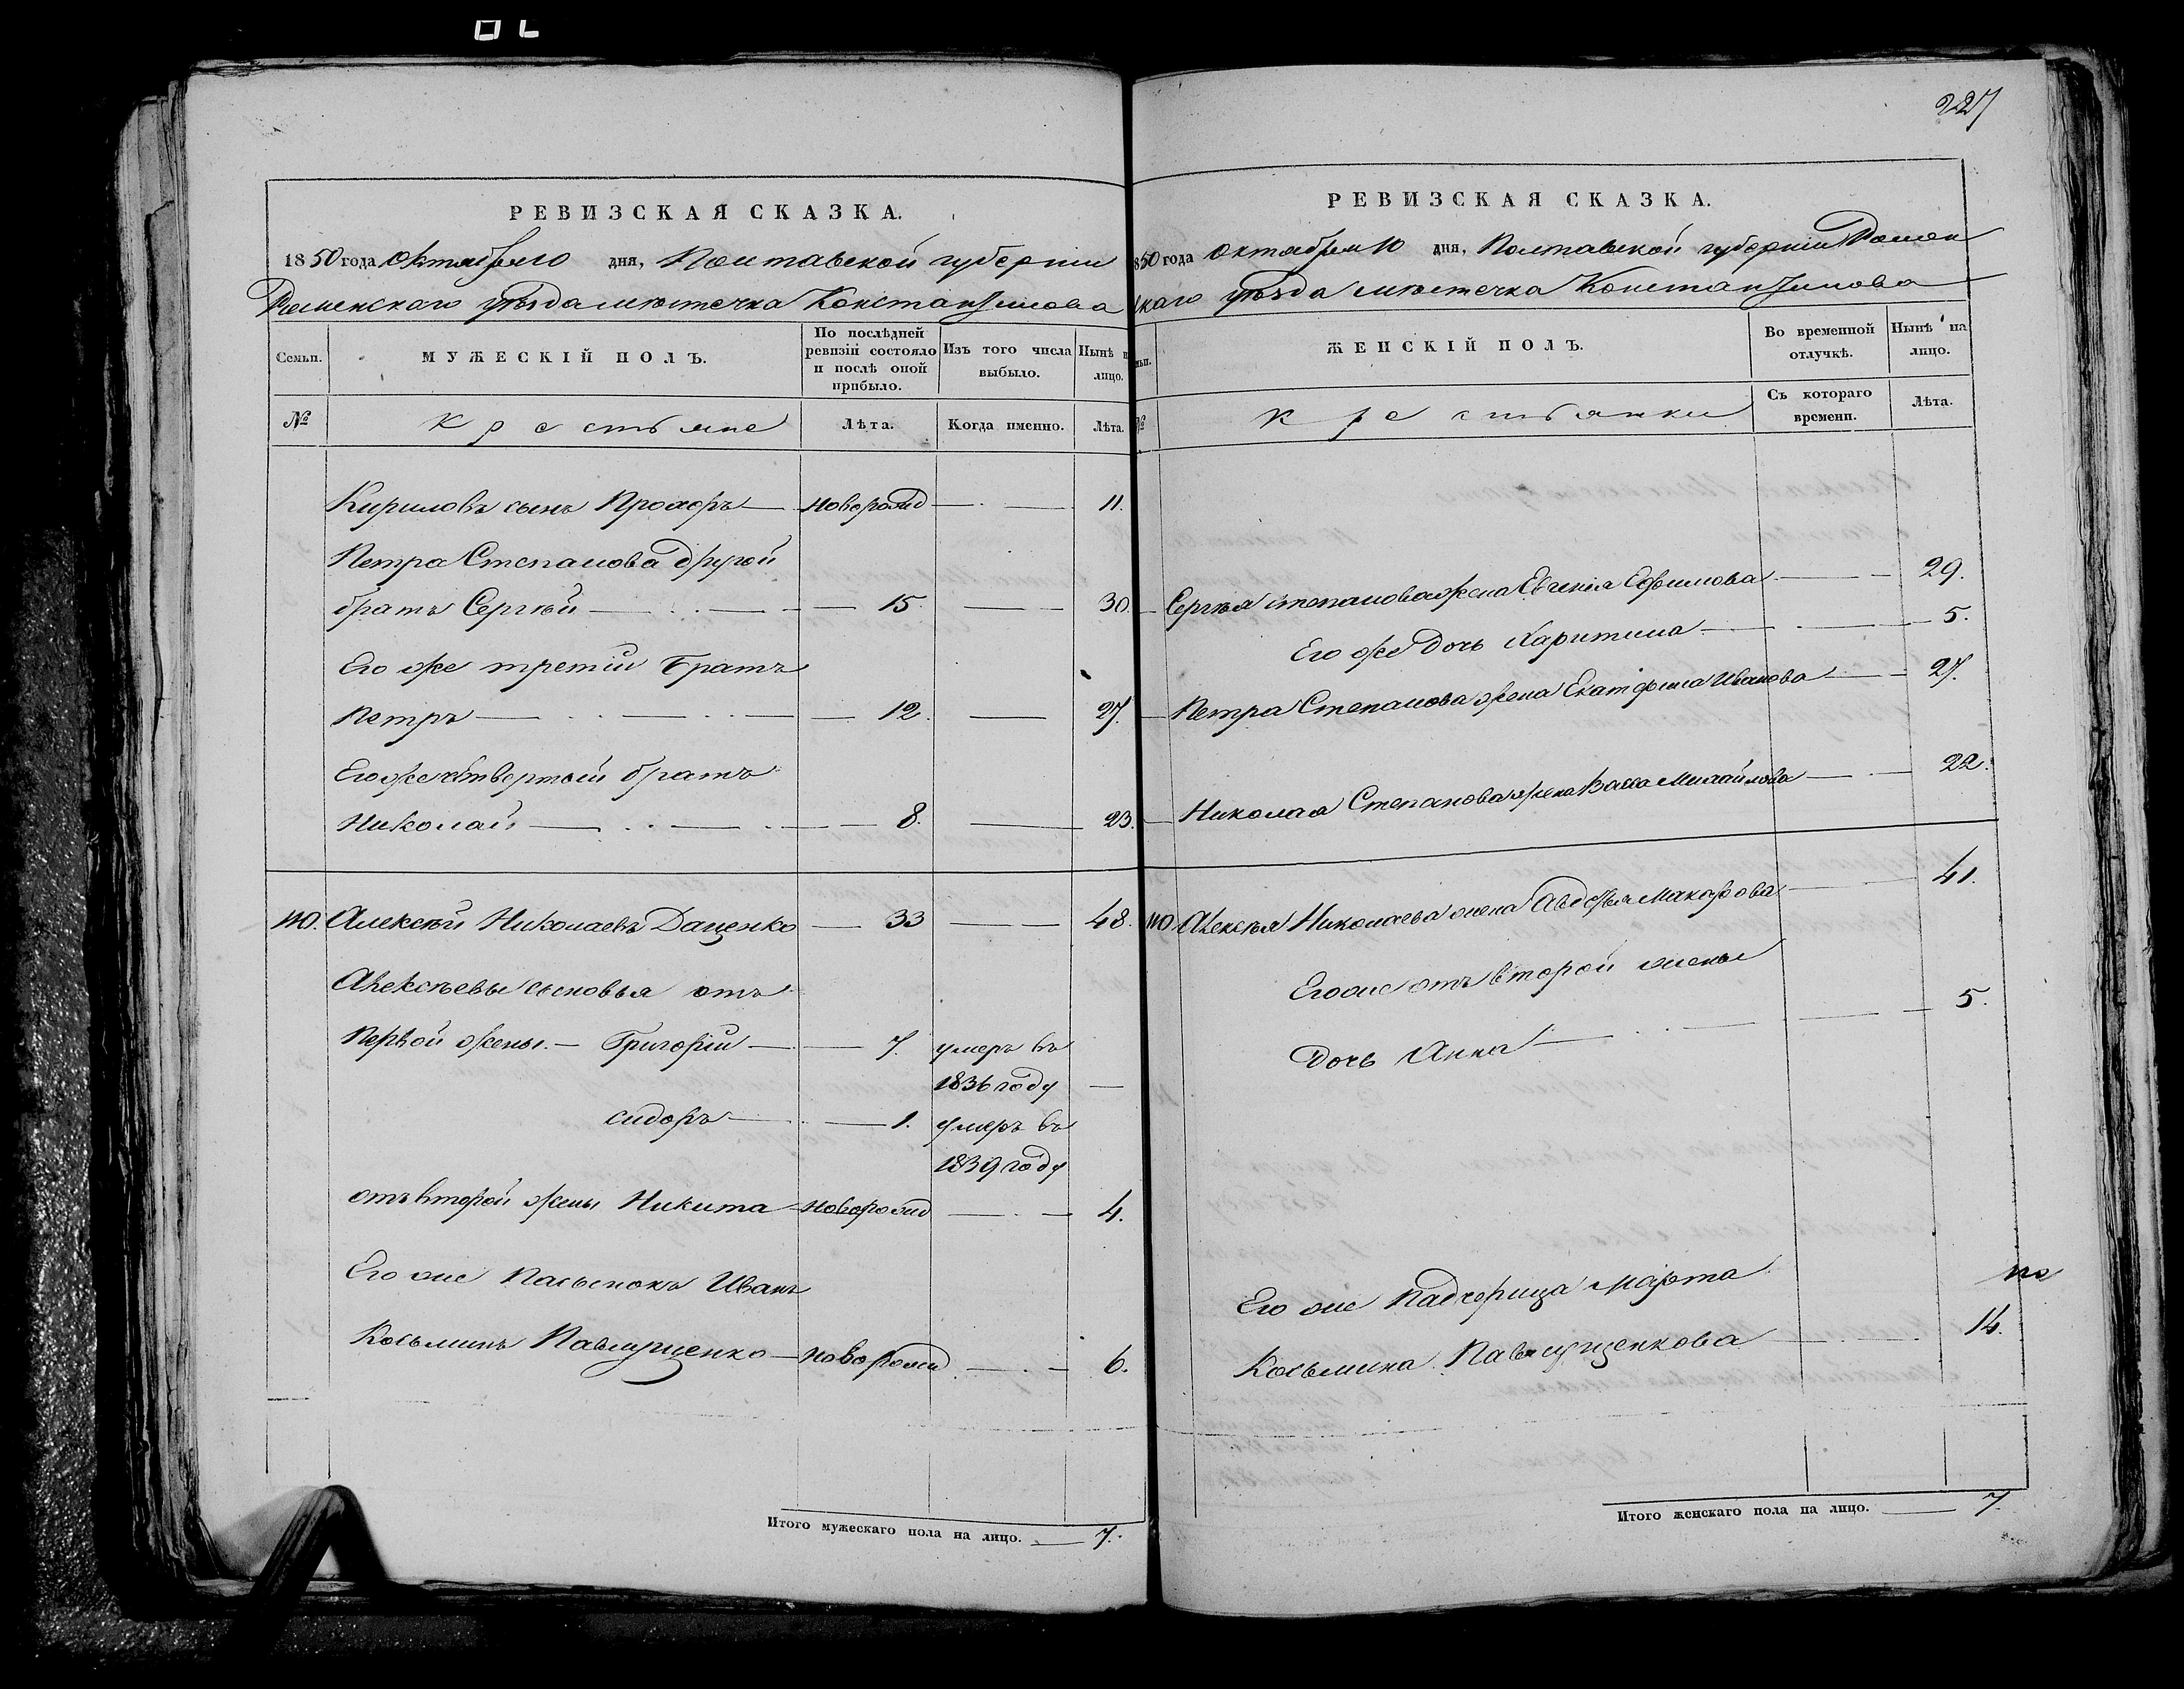 227
РЕВИЗСКАЯ СКАЗКА.
1850 года Октября 10 дня, Полтавской губернiи
Роменскаго уѣзда мѣстечка Константинова
Семьи. МУЖЕСКІЙ ПОЛЪ. По послѣдней ревизіи состояло и послѣ оной прибыло. Изъ того числа выбыло. Нынѣ н лицо.
№ Крестьяне Лѣта. Когда именно. Лѣта.
Кириловъ сынъ Прохоръ — новорожд — 11.
Петра Степанова другой
братъ Сергѣй — 15. — 30.
Его же третiй братъ
Петръ — 12. — 27.
Его же четвертый братъ
Николай — 8. — 23.
110. Алексѣй Николаевъ Даценко — 33 — 48.
Алексѣевы сыновья отъ
Первой жены. — Григорiй — 7. умеръ въ
1836 году —
Сидоръ — 1. умеръ въ
1839 году
отъ второй жены Никита — новорожд — 4.
Его же Пасынокъ Иванъ
Косьминъ Павлущенко — новорожд — 6.
Итого мужескаго пола на лицо. — 7.
РЕВИЗСКАЯ СКАЗКА.
850 года Октября 10 дня, Полтавской губернiи Ромен
скаго уѣзда мѣстечка Константинова
мьи. ЖЕНСКІЙ ПОЛЪ. Во временной отлучкѣ. Нынѣ на лицо.
№ Крестьянки Съ котораго времени. Лѣта.
Сергѣя Степанова жена Евгенiя Ефимова — 29.
Его же дочь Харитина — 5.
Петра Степанова жена Екатерина Иванова — 27.
Николая Степанова жена Васса Михайлова — 22.
110 Алексѣя Николаева жена Авдотья Макарова — 41.
Его же отъ второй жены
Дочь Анна — 5.
Его же Падчерица Марта
Косьмина Павлущенкова — 14.
Итого женскаго пола на лицо. — 7.